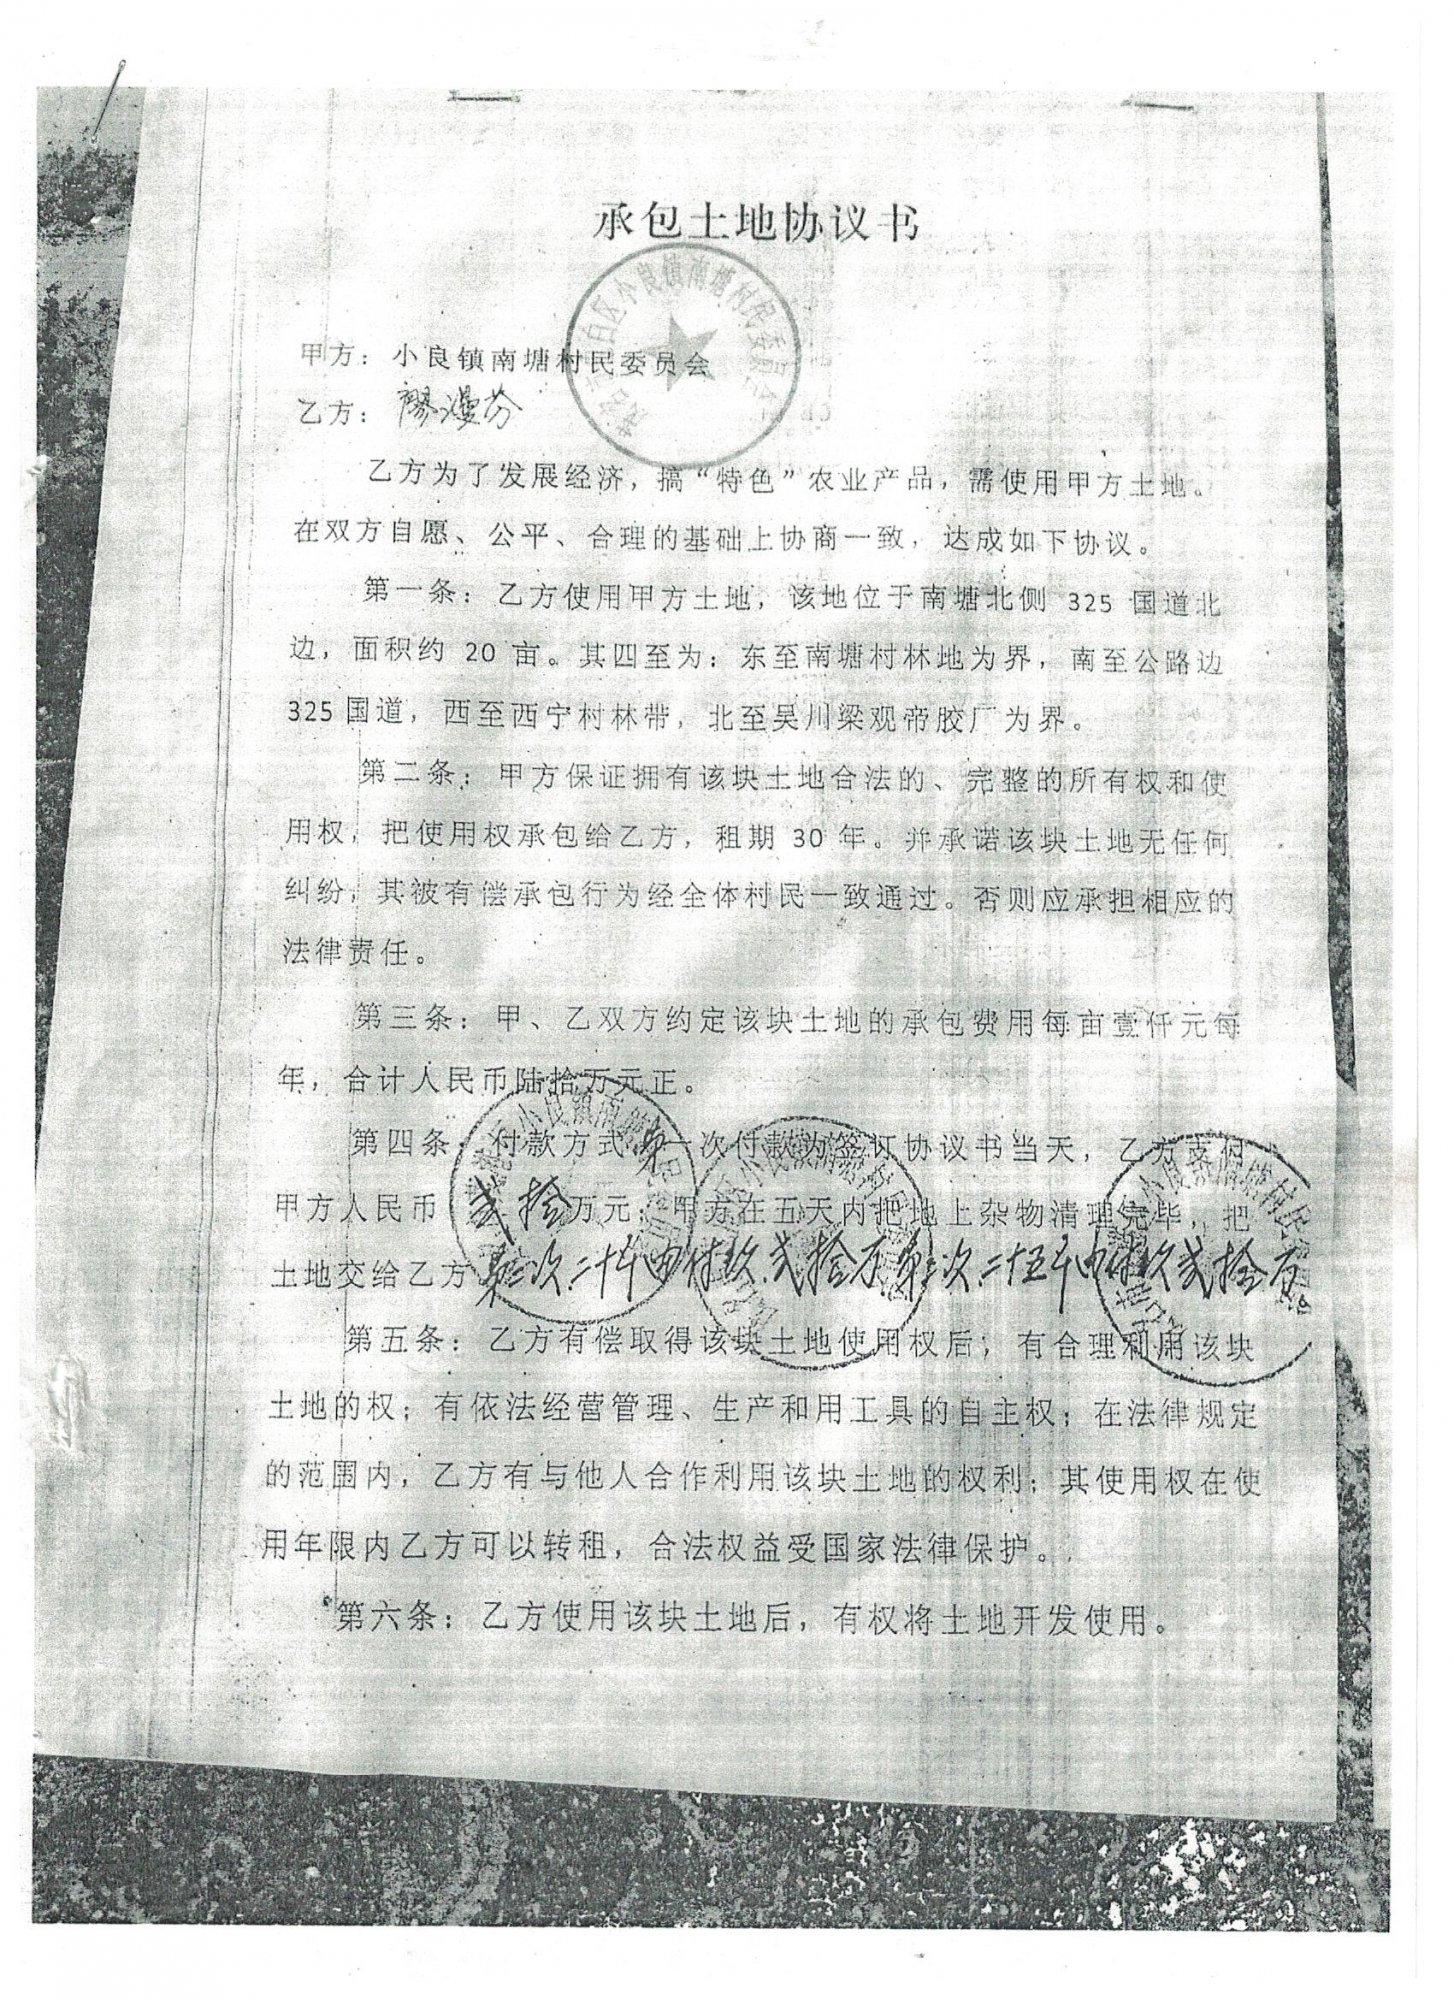 承包土地协议书
甲方：小良镇南塘村民委员会
乙方：廖漫芬
乙方为了发展经济，搞“特色”农业产品，需使用甲方土地。
在双方自愿、公平、合理的基础上协商一致，达成如下协议。
第一条：乙方使用甲方土地，该地位于南塘北侧 325 国道北
边，面积约 20 亩。其四至为：东至南塘村林地为界，南至公路边
325 国道，西至西宁村林带，北至吴川梁观帝胶厂为界。
第二条：甲方保证拥有该块土地合法的、完整的所有权和使
用权，把使用权承包给乙方，租期 30 年。并承诺该块土地无任何
纠纷，其被有偿承包行为经全体村民一致通过。否则应承担相应的
法律责任。
第三条：甲、乙双方约定该块土地的承包费用每亩壹仟元每
年，合计人民币陆拾万元正。
第四条：付款方式第一次付款为签订协议书当天，乙方支付
甲方人民币贰拾万元；甲方在五天内把地上杂物清理完毕，把
土地交给乙方第二次二十年内付款贰拾万第三次二十五年内付款贰拾万
第五条：乙方有偿取得该块土地使用权后；有合理利用该块
土地的权；有依法经营管理、生产和用工具的自主权；在法律规定
的范围内，乙方有与他人合作利用该块土地的权利；其使用权在使
用年限内乙方可以转租，合法权益受国家法律保护。
第六条：乙方使用该块土地后，有权将土地开发使用。